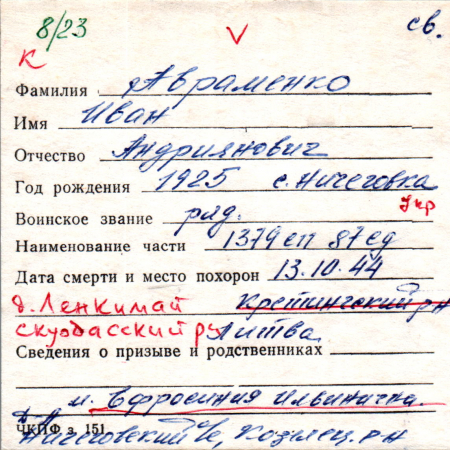 8/23 V св.
К
Фамилия Авраменко
Имя Иван
Отчество Андриянович
Год рождения 1925 с. Ничеговка
Укр
Воинское звание ряд.
Наименование части 1379 сп 87 сд
Дата смерти и место похорон 13.10.44
д. Ленкимай Кретингский р-н
Скуодасский р-н Литва
Сведения о призыве и родственниках
м. Ефросиния Ильинична
ЧКПФ з. 151
Ничеговский Козелец. р-н